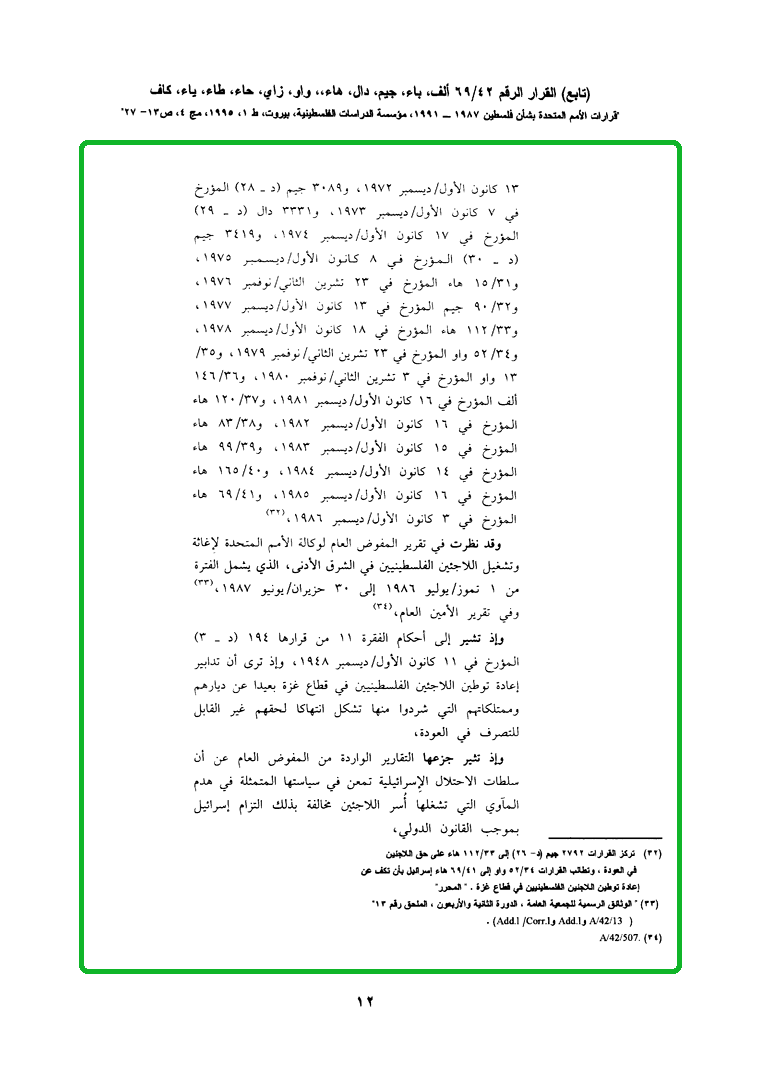 (تابع) القرار الرقم ٦٩/٤٢ ألف، باء، جيم، دال، هاء،، واو، زاي، حاء، طاء، ياء، كاف
"قرارات الأمم المتحدة بشأن فلسطين ١٩٨٧ ــ ١٩٩١، مؤسسة الدراسات الفلسطينية، بيروت، ط ١، ١٩٩٥، مج ٤، ص١٣- ٢٧"
١٣ كانون الأول/ديسمبر ١٩٧٢، و٣٠٨٩ جيم (د ـ ٢٨) المؤرخ
في ٧ كانون الأول/ديسمبر ١٩٧٣، و٣٣٣١ دال (د ـ ٢٩)
المؤرخ في ١٧ كانون الأول/ديسمبر ١٩٧٤، و٣٤١٩ جيم
(د ـ ٣٠) المؤرخ في ٨ كانون الأول/ديسمبر ١٩٧٥،
و١٥/٣١ هاء المؤرخ في ٢٣ تشرين الثاني/نوفمبر ١٩٧٦،
و٩٠/٣٢ جيم المؤرخ في ١٣ كانون الأول/ديسمبر ١٩٧٧،
و١١٢/٣٣ هاء المؤرخ في ١٨ كانون الأول/ديسمبر ١٩٧٨،
و٥٢/٣٤ واو المؤرخ في ٢٣ تشرين الثاني/نوفمبر ١٩٧٩، و٣٥/
١٣ واو المؤرخ في ٣ تشرين الثاني/نوفمبر ١٩٨٠، و١٤٦/٣٦
ألف المؤرخ في ١٦ كانون الأول/ديسمبر ١٩٨١، و١٢٠/٣٧ هاء
المؤرخ في ١٦ كانون الأول/ديسمبر ١٩٨٢، و٨٣/٣٨ هاء
المؤرخ في ١٥ كانون الأول/ديسمبر ١٩٨٣، و٩٩/٣٩ هاء
المؤرخ في ١٤ كانون الأول/ديسمبر ١٩٨٤، و١٦٥/٤٠ هاء
المؤرخ في ١٦ كانون الأول/ديسمبر ١٩٨٥، و٦٩/٤١ هاء
المؤرخ في ٣ كانون الأول/ديسمبر ١٩٨٦،(٣٢)
وقد نظرت في تقرير المفوض العام لوكالة الأمم المتحدة لإغاثة
وتشغيل اللاجئين الفلسطينيين في الشرق الأدنى، الذي يشمل الفترة
من ١ تموز/يوليو ١٩٨٦ إلى ٣٠ حزيران/يونيو ١٩٨٧،(٣٣)
وفي تقرير الأمين العام،(٣٤)
وإذ تشير إلى أحكام الفقرة ١١ من قرارها ١٩٤ (د ـ ٣)
المؤرخ في ١١ كانون الأول/ديسمبر ١٩٤٨، وإذ ترى أن تدابير
إعادة توطين اللاجئين الفلسطينيين في قطاع غزة بعيدا عن ديارهم
وممتلكاتهم التي شردوا منها تشكل انتهاكا لحقهم غير القابل
للتصرف في العودة،
وإذ تثير جزعها التقارير الواردة من المفوض العام عن أن
سلطات الاحتلال الإسرائيلية تمعن في سياستها المتمثلة في هدم
المآوي التي تشغلها أُسر اللاجئين مخالفة بذلك التزام إسرائيل
بموجب القانون الدولي،
(٣٢) تركز القرارات ٢٧٩٢ جيم (د- ٢٦) إلى ١١٢/٣٣ هاء على حق اللاجئين
في العودة ، وتطالب القرارات ٥٢/٣٤ واو إلى ٦٩/٤١ هاء إسرائيل بأن تكف عن
إعادة توطين اللاجئين الفلسطينيين في قطاع غزة . " المحرر"
(٣٣) " الوثائق الرسمية للجمعية العامة ، الدورة الثانية والأربعون ، الملحق رقم ١٣"
( A/42/13 وAdd.l وAdd.l /Corr.l) .
(٣٤) A/42/507.
١٢